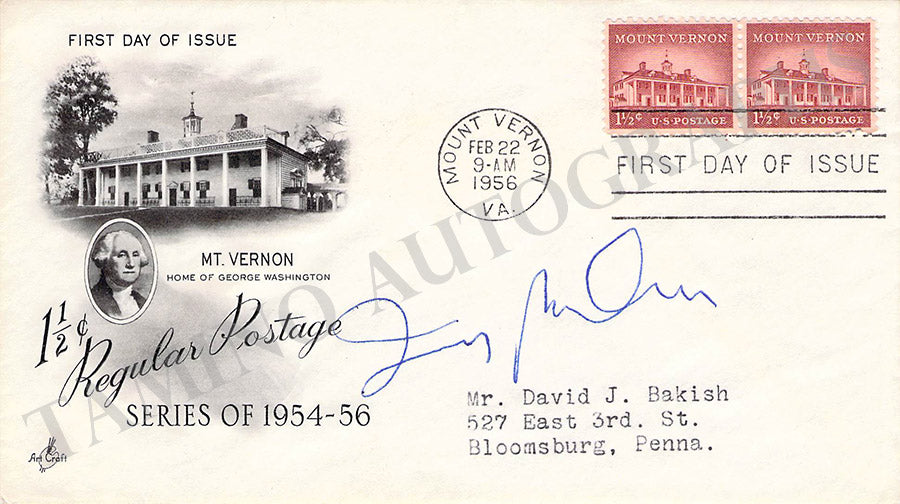 FIRST DAY OF ISSUE
MOUNT VERNON
1½¢ U·S·POSTAGE
MOUNT VERNON
1½¢ U·S·POSTAGE
MOUNT VERNON
FEB 22
9-AM
1956
VA.
FIRST DAY OF ISSUE
MT. VERNON
HOME OF GEORGE WASHINGTON
1½¢
Regular Postage
SERIES OF 1954-56
Mr. David J. Bakish
527 East 3rd. St.
Bloomsburg, Penna.
Art Craft
TAMINO AUTOGRAPHS